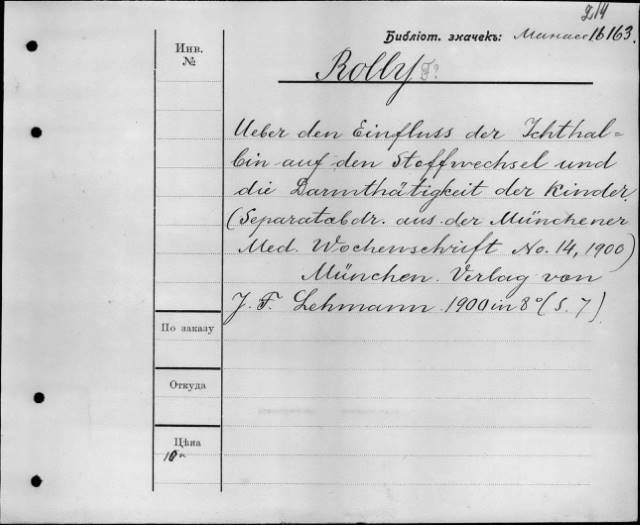 Z,14
Библіот. значекъ: Минасс 16163.
Инв.
№
Rolly F?
Ueber den Einfluss der Ichthal=
bin auf den Stoffwechsel und
die Darmthätigkeit der Kinder.
(Separatabdr. aus der Münchener
Med. Wochenschrift No. 14, 1900)
München. Verlag von
J. F. Lehmann. 1900 in 8° (S. 7)
По заказу
Откуда
Цѣна
10 к